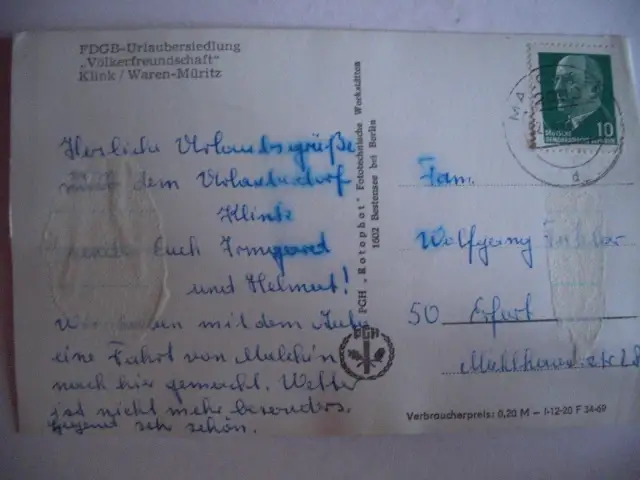 FDGB-Urlaubersiedlung
„Völkerfreundschaft"
Klink / Waren-Müritz
Herzliche Urlaubsgrüße
dem Urlauberdorf
Klink
Euch Irmgard
und Helmut!
Wir haben mit dem Auto
eine Fahrt von Malchin
nach hier gemacht. Wetter
ist nicht mehr besonders.
Gegend sehr schön.
PGH „Rotophot" Fototechnische Werkstätten
1602 Bestensee bei Berlin
PGH
10
DEUTSCHE
DEMOKRATISCHE REPUBLIK
Fam.
Wolfgang
50 Erfurt
Verbraucherpreis: 0,20 M – I-12-20 F 34-69